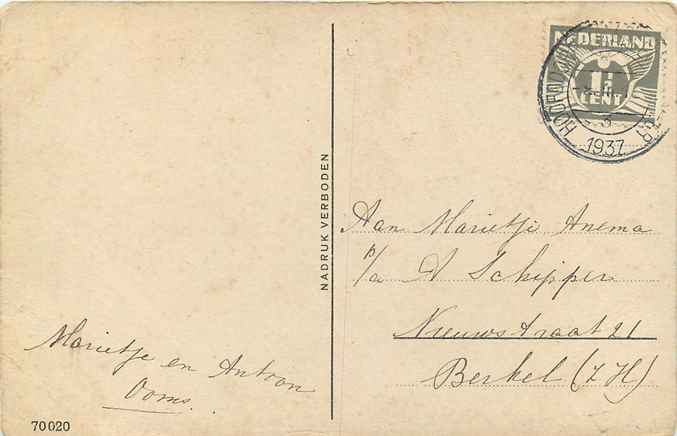 NEDERLAND
1½
CENT
3
1937
NADRUK VERBODEN
Aan Marietje Anema
p/a A Schipper
Nieuwstraat 21
Berkel (Z H)
Marietje en Antoon
Ooms.
70020